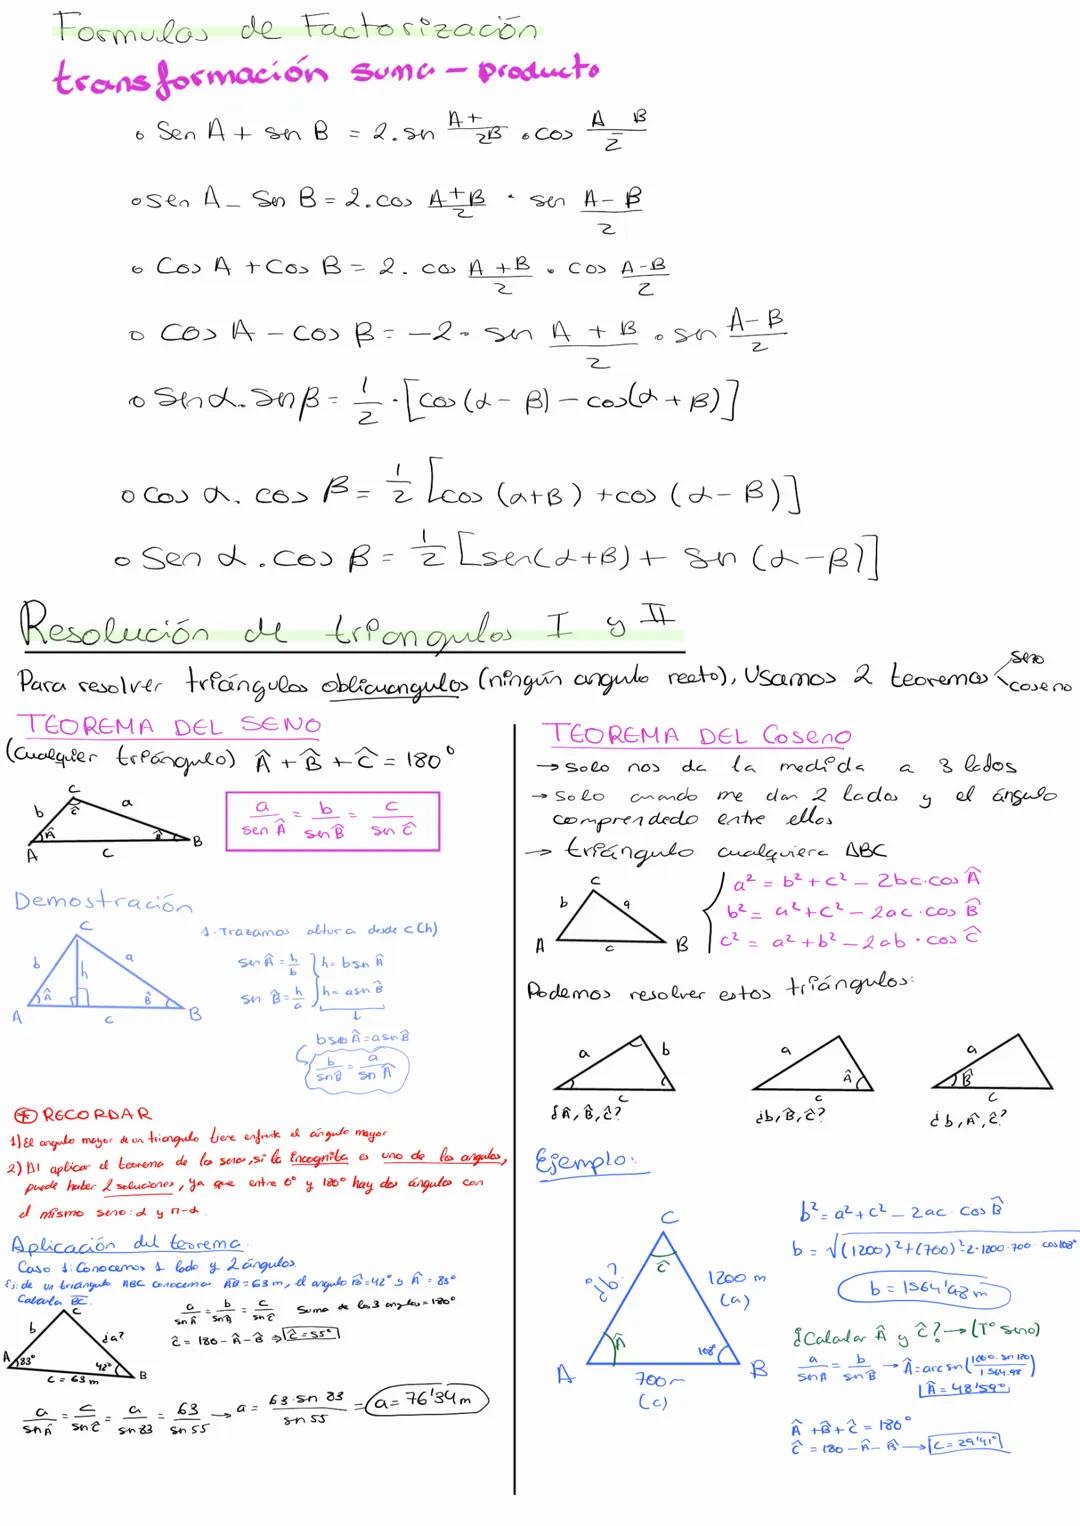 Formulas de Factorización
transformación suma - producto
• Sen A + sen B = 2. sen (A+B)/2 . cos (A B)/2
• sen A - Sen B = 2. cos (A+B)/2 . sen (A-B)/2
• Cos A + Cos B = 2. cos (A+B)/2 . cos (A-B)/2
• cos A - cos B = -2. sen (A+B)/2 . sen (A-B)/2
• Sen α. Sen β = 1/2 . [cos (α - β) - cos(α + β)]
• cos α. cos β = 1/2 [cos (α+β) + cos (α - β)]
• Sen α. cos β = 1/2 [sen(α+β) + sen (α-β)]
Resolución de triangulos I y II
Para resolver triángulos oblicuangulos (ningún angulo recto), Usamos 2 teoremas seno coseno
TEOREMA DEL SENO
(Cualquier triángulo) Â + B̂ + Ĉ = 180°
C
b ĉ a
Â B̂
A c B
a/sen Â = b/sen B̂ = c/sen Ĉ
Demostración
C
b h a
Â B̂
A c B
1. Trazamos altura desde c (h)
sen Â = h/b } h = b sen Â
sen B̂ = h/a } h = a sen B̂
b sen Â = a sen B̂
b/sen B̂ = a/sen Â
* RECORDAR
1) El angulo mayor de un triangulo tiene enfrente el ángulo mayor
2) Al aplicar el teorema de los senos, si la incognita es uno de los angulos,
puede haber 2 soluciones, ya que entre 0° y 180° hay dos ángulos con
el mismo seno: α y π-α
Aplicación del teorema.
Caso 1: Conocemos 1 lado y 2 ángulos.
Ej: de un triángulo ABC conocemos AB = 63 m, el angulo B̂ = 42° y Â = 83°
Calcula BC.
C
b ¿a?
A 83° 42° B
c = 63 m
a/sen Â = b/sen B̂ = c/sen Ĉ Suma de los 3 angulos = 180°
ĉ = 180 - Â - B̂ → ĉ = 55°
a/sen Â = c/sen ĉ = a/sen 83 = 63/sen 55 → a = 63·sen 83/sen 55 = a = 76'34 m
TEOREMA DEL Coseno
→ Solo nos da la medida a 3 lados
→ Solo cuando me dan 2 lados y el ángulo
comprendedo entre ellos
→ triángulo cualquiera ABC
C
b a
A c B
a² = b² + c² - 2bc·cos Â
b² = a² + c² - 2ac·cos B̂
c² = a² + b² - 2ab·cos Ĉ
Podemos resolver estos triángulos:
a b c
¿Â, B̂, ĉ?
a Â c
¿b, B̂, ĉ?
a B̂ c
¿b, Â, ĉ?
Ejemplo:
C
ĉ
¿b? 1200 m
(a)
Â 108°
A 700 m B
(c)
b² = a² + c² - 2ac·cos B̂
b = √(1200)² + (700)² - 2·1200·700 cos 108°
b = 1564'98 m
¿Calcular Â y ĉ? → (Tº seno)
a/sen Â = b/sen B̂ → Â = arc sen (1200·sen 120/1564.98)
Â = 48'59°
Â + B̂ + ĉ = 180°
ĉ = 180 - Â - B̂ → C = 29'41°